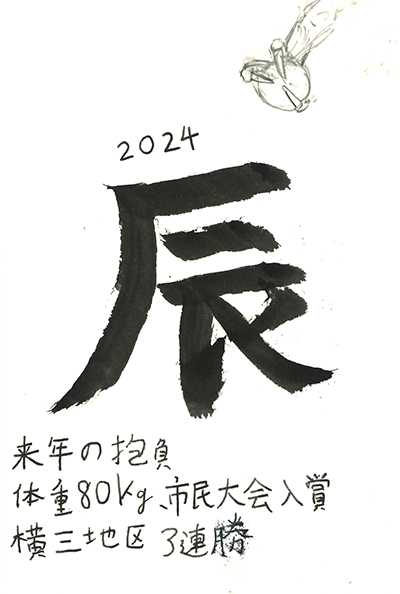 2024
辰
来年の抱負
体重80kg、市民大会入賞
横三地区3連勝